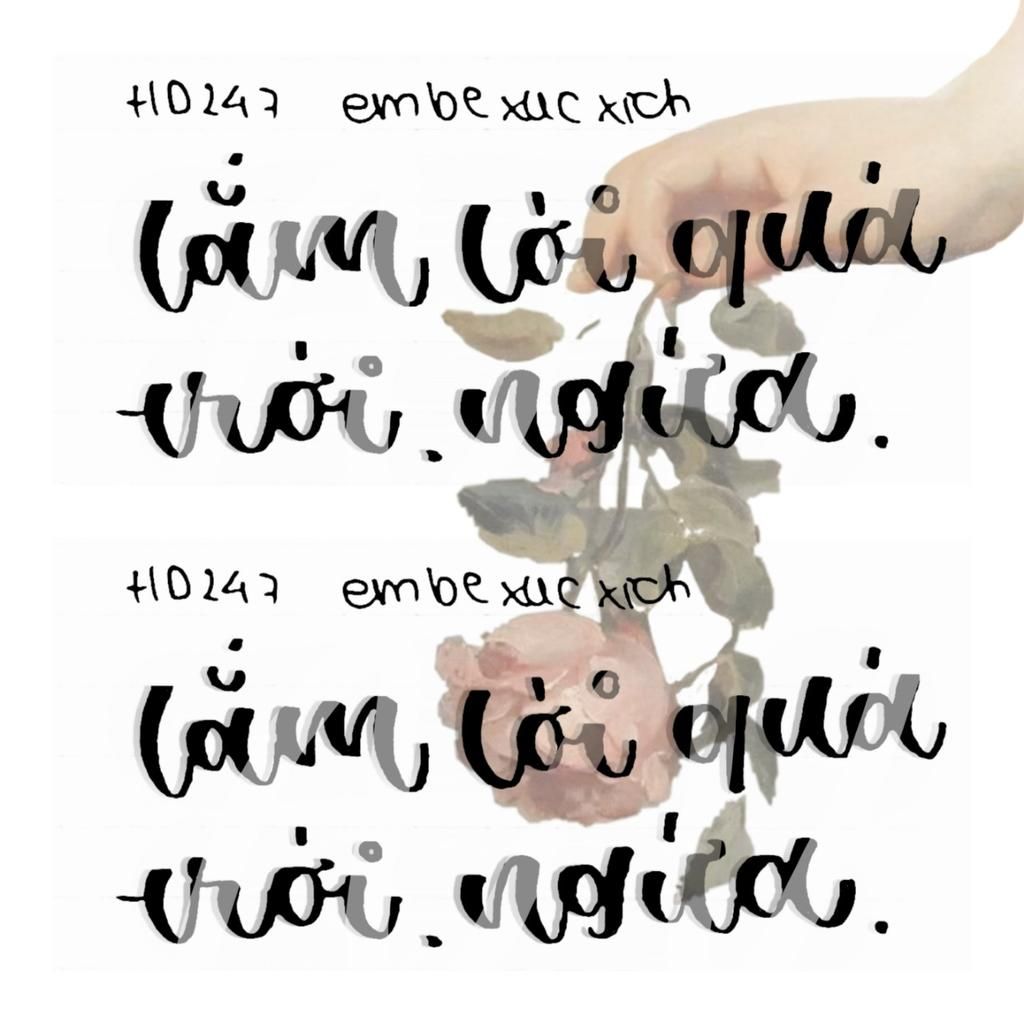 HD247 embe xuc xich
lắm lời quá
trời. ngứa.
HD247 embe xuc xich
lắm lời quá
trời. ngứa.